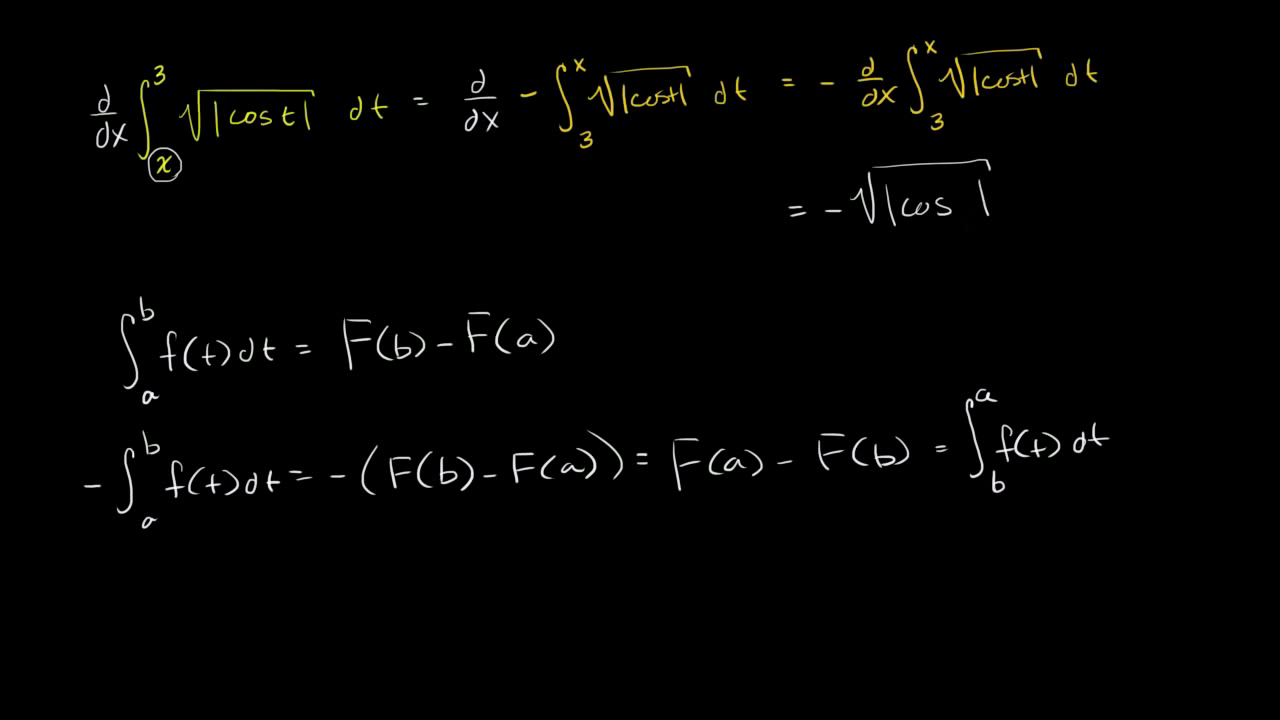 d/dx ∫_x^3 √|cos t| dt = d/dx - ∫_3^x √|cos t| dt = - d/dx ∫_3^x √|cos t| dt
= -√|cos |
∫_a^b f(t) dt = F(b) - F(a)
- ∫_a^b f(t) dt = - (F(b) - F(a)) = F(a) - F(b) = ∫_b^a f(t) dt